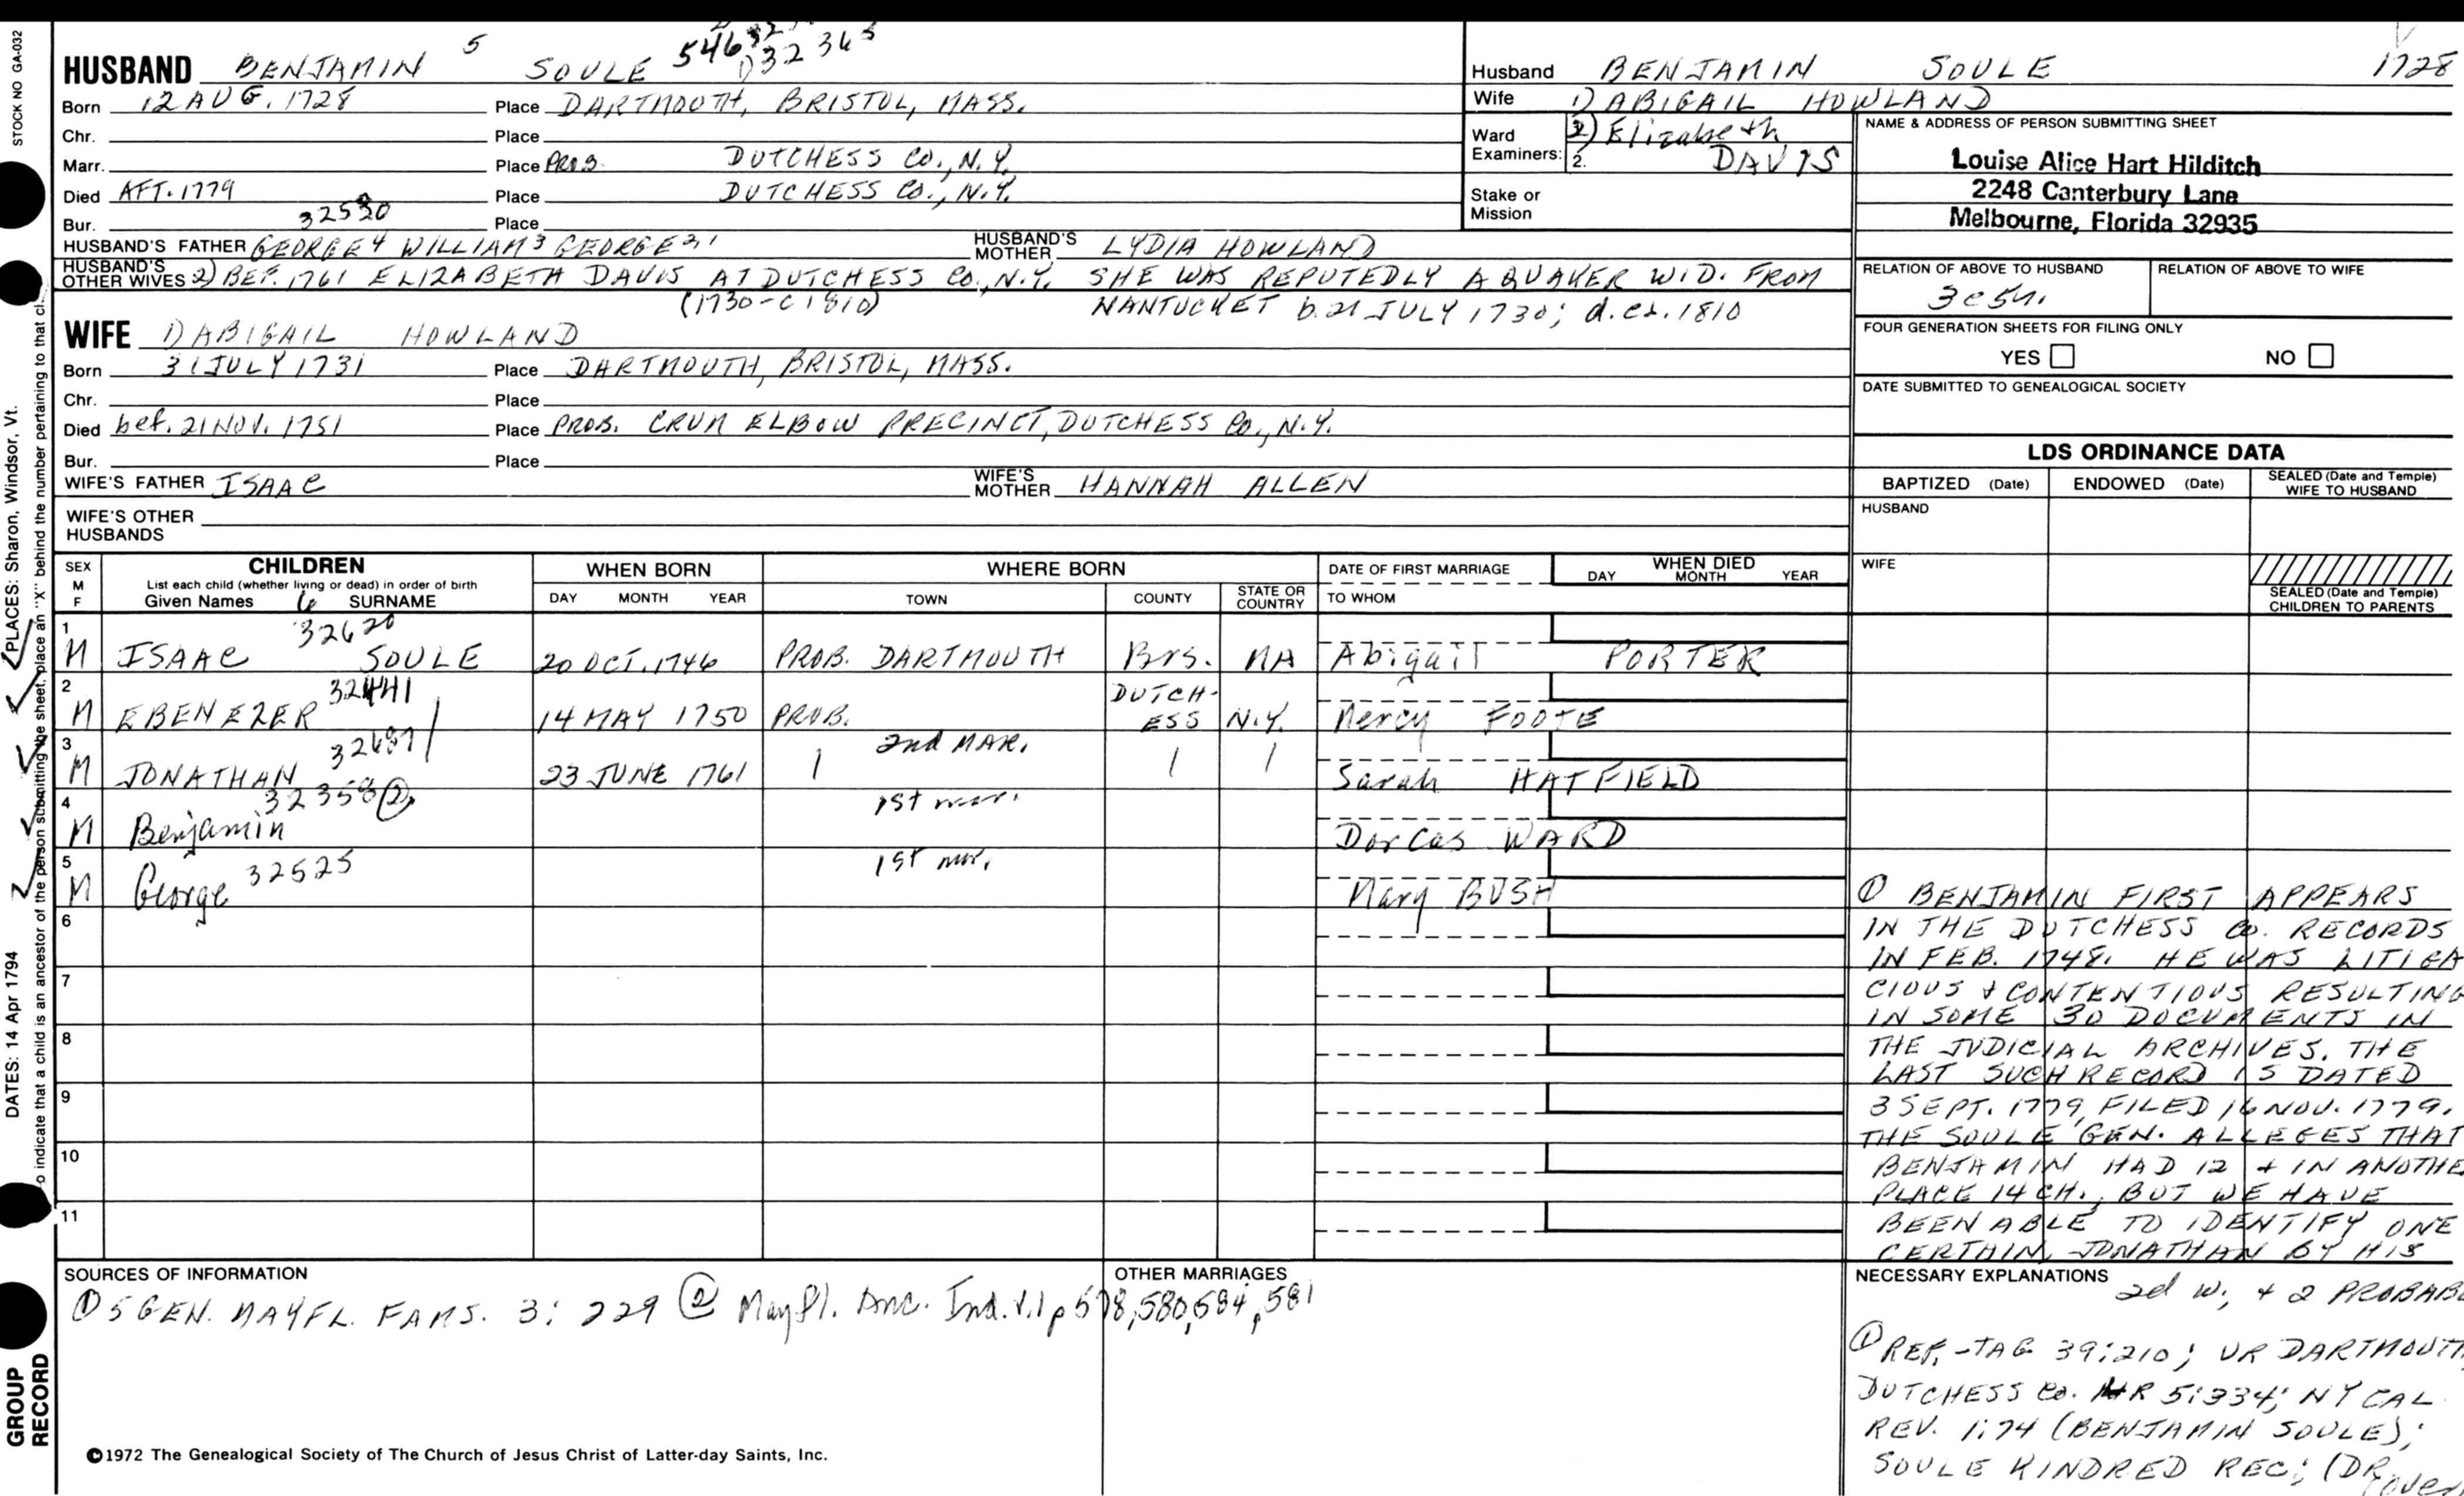 STOCK NO GA-032
HUSBAND BENJAMIN 5 SOULE
Born 12 AUG. 1728 Place DARTMOUTH, BRISTOL, MASS.
Chr. Place
Marr. Place PROB. DUTCHESS CO., N.Y.
Died AFT. 1779 Place DUTCHESS CO., N.Y.
Bur. 32530 Place
HUSBAND'S FATHER GEORGE 4 WILLIAM 3 GEORGE 2,1 HUSBAND'S MOTHER LYDIA HOWLAND
HUSBAND'S OTHER WIVES 2) BEF. 1761 ELIZABETH DAVIS AT DUTCHESS CO., N.Y. SHE WAS REPUTEDLY A QUAKER WID. FROM
(1730-C1810) NANTUCKET b. 21 JULY 1730; d. ca. 1810
WIFE 1) ABIGAIL HOWLAND
Born 31 JULY 1731 Place DARTMOUTH, BRISTOL, MASS.
Chr. Place
Died bef. 21 NOV. 1751 Place PROB. CRUM ELBOW PRECINCT, DUTCHESS CO., N.Y.
Bur. Place
WIFE'S FATHER ISAAC WIFE'S MOTHER HANNAH ALLEN
WIFE'S OTHER HUSBANDS
Husband BENJAMIN SOULE 1728
Wife 1) ABIGAIL HOWLAND
Ward Examiners: 2) Elizabeth
2. DAVIS
Stake or Mission
NAME & ADDRESS OF PERSON SUBMITTING SHEET
Louise Alice Hart Hilditch
2248 Canterbury Lane
Melbourne, Florida 32935
RELATION OF ABOVE TO HUSBAND RELATION OF ABOVE TO WIFE
FOUR GENERATION SHEETS FOR FILING ONLY
YES NO
DATE SUBMITTED TO GENEALOGICAL SOCIETY
LDS ORDINANCE DATA
BAPTIZED (Date) ENDOWED (Date) SEALED (Date and Temple) WIFE TO HUSBAND
HUSBAND
WIFE
SEALED (Date and Temple) CHILDREN TO PARENTS
SEX M F CHILDREN WHEN BORN WHERE BORN DATE OF FIRST MARRIAGE WHEN DIED
List each child (whether living or dead) in order of birth
Given Names 6 SURNAME DAY MONTH YEAR TOWN COUNTY STATE OR COUNTRY TO WHOM DAY MONTH YEAR
1 32620
M ISAAC SOULE 20 OCT. 1746 PROB. DARTMOUTH Brs. MA Abigail PORTER
2 32441
M EBENEZER 14 MAY 1750 PROB. DUTCH-ESS N.Y. Mercy FOOTE
3 32687 2nd MAR.
M JONATHAN 23 JUNE 1761 Sarah HATFIELD
4 32358 2 1st mar.
M Benjamin Dorcas WARD
5 32525 1st mar.
M George Mary BUSH
6
7
8
9
10
11
1 BENJAMIN FIRST APPEARS
IN THE DUTCHESS CO. RECORDS
IN FEB. 1748. HE WAS LITIGA
CIOUS & CONTENTIOUS RESULTING
IN SOME 30 DOCUMENTS IN
THE JUDICIAL ARCHIVES. THE
LAST SUCH RECORD IS DATED
3 SEPT. 1779, FILED 16 NOV. 1779.
THE SOULE GEN. ALLEGES THAT
BENJAMIN HAD 12 + IN ANOTHE
PLACE 14 CH., BUT WE HAVE
BEEN ABLE TO IDENTIFY ONE
CERTAIN, JONATHAN BY HIS
NECESSARY EXPLANATIONS 2d W; + 2 PROBABL
1 REF, -TAG 39:210; VR DARTMOUTH
DUTCHESS CO. 5:334; NY CAL.
REV. 1:74 (BENJAMIN SOULE);
SOULE KINDRED REC; (DR
over
SOURCES OF INFORMATION
1 5 GEN. MAYFL. FAMS. 3: 229 2 Mayfl. Anc. Ind. v.1 p 578,580,584,581
OTHER MARRIAGES
©1972 The Genealogical Society of The Church of Jesus Christ of Latter-day Saints, Inc.
PLACES: Sharon, Windsor, Vt.
DATES: 14 Apr 1794
o indicate that a child is an ancestor of the person submitting the sheet, place an "X" behind the number pertaining to that ch
GROUP
RECORD